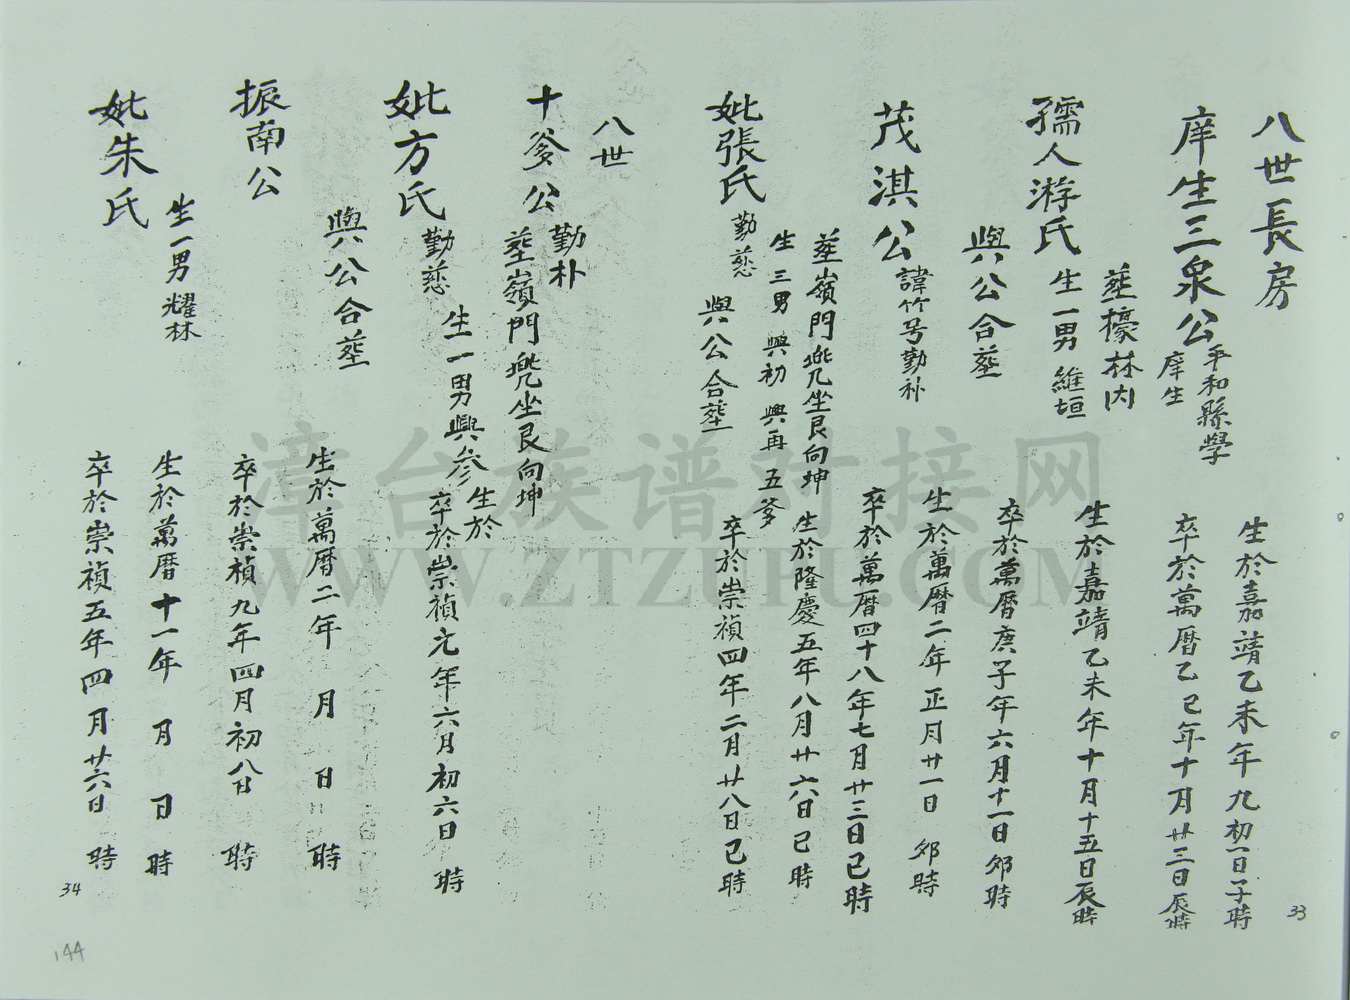 八世長房
庠生三泉公
平和縣學
庠生
生於嘉靖乙未年九初一日子時
卒於萬曆乙巳年十月廿三日辰時
葬檺林内
孺人游氏
生一男 維垣
生於嘉靖乙未年十月十五日辰時
與公合葬
卒於萬曆庚子年六月十一日卯時
茂淇公
諱竹号勤朴
生於萬曆二年正月廿一日 卯時
卒於萬曆四十八年七月廿三日巳時
葬嶺門兠坐艮向坤
生三男 興初 興再 五爹
妣張氏
勤慈
生於隆慶五年八月廿六日巳時
與公合葬
卒於崇禎四年二月廿八日巳時
八世
十爹公
勤朴
葬嶺門兠坐艮向坤
生於
妣方氏
勤慈
生一男興參
卒於崇禎元年六月初六日 時
與公合葬
振南公
生於萬曆二年 月 日 時
卒於崇禎九年四月初八日 時
生一男 耀林
妣朱氏
生於萬曆十一年 月 日 時
卒於崇禎五年四月廿六日 時
33
34
144
漳台族谱对接网
WWW.ZTZUPU.COM